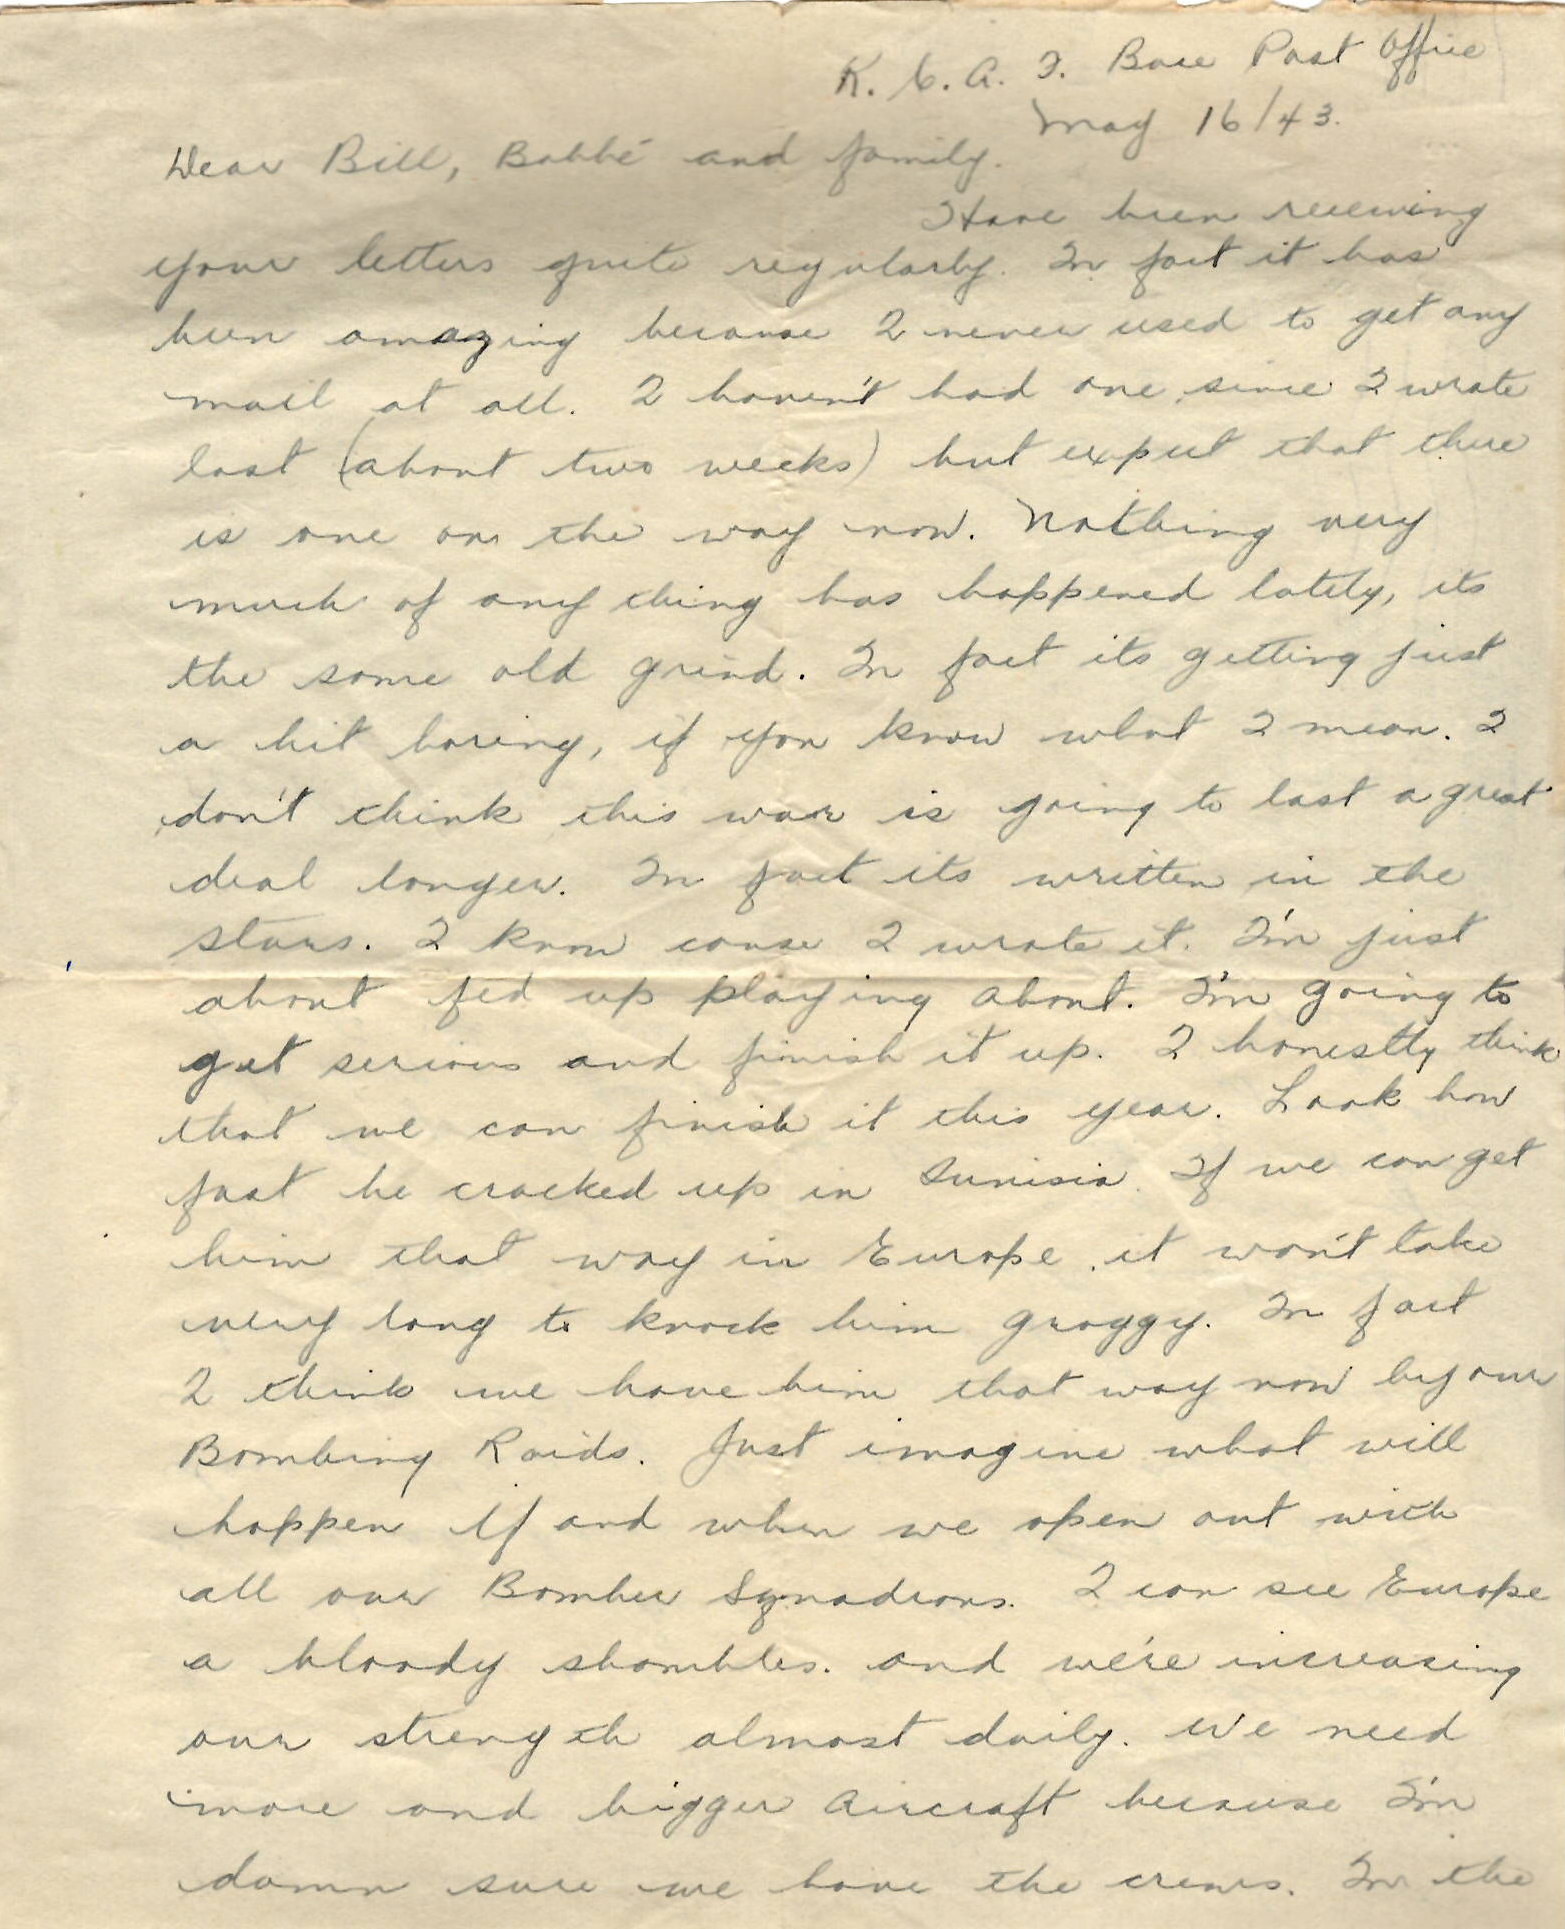 R.C.A.F. Base Post Office
May 16/43.
Dear Bill, Bobbé and family.
Have been receiving
your letters quite regularly. In fact it has
been amazing because I never used to get any
mail at all. I haven't had one since I wrote
last (about two weeks) but expect that there
is one on the way now. Nothing very
much of any thing has happened lately, its
the same old grind. In fact its getting just
a bit boring, if you know what I mean. I
don't think this war is going to last a great
deal longer. In fact its written in the
stars. I know cause I wrote it. I'm just
about fed up playing about. I'm going to
get serious and finish it up. I honestly think
that we can finish it this year. Look how
fast he cracked up in Tunisia. If we can get
him that way in Europe it won't take
very long to knock him groggy. In fact
I think we have him that way now by our
Bombing Raids. Just imagine what will
happen if and when we open out with
all our Bomber Squadrons. I can see Europe
a bloody shambles. and we're increasing
our strength almost daily. We need
more and bigger aircraft because I'm
damn sure we have the crews. In the